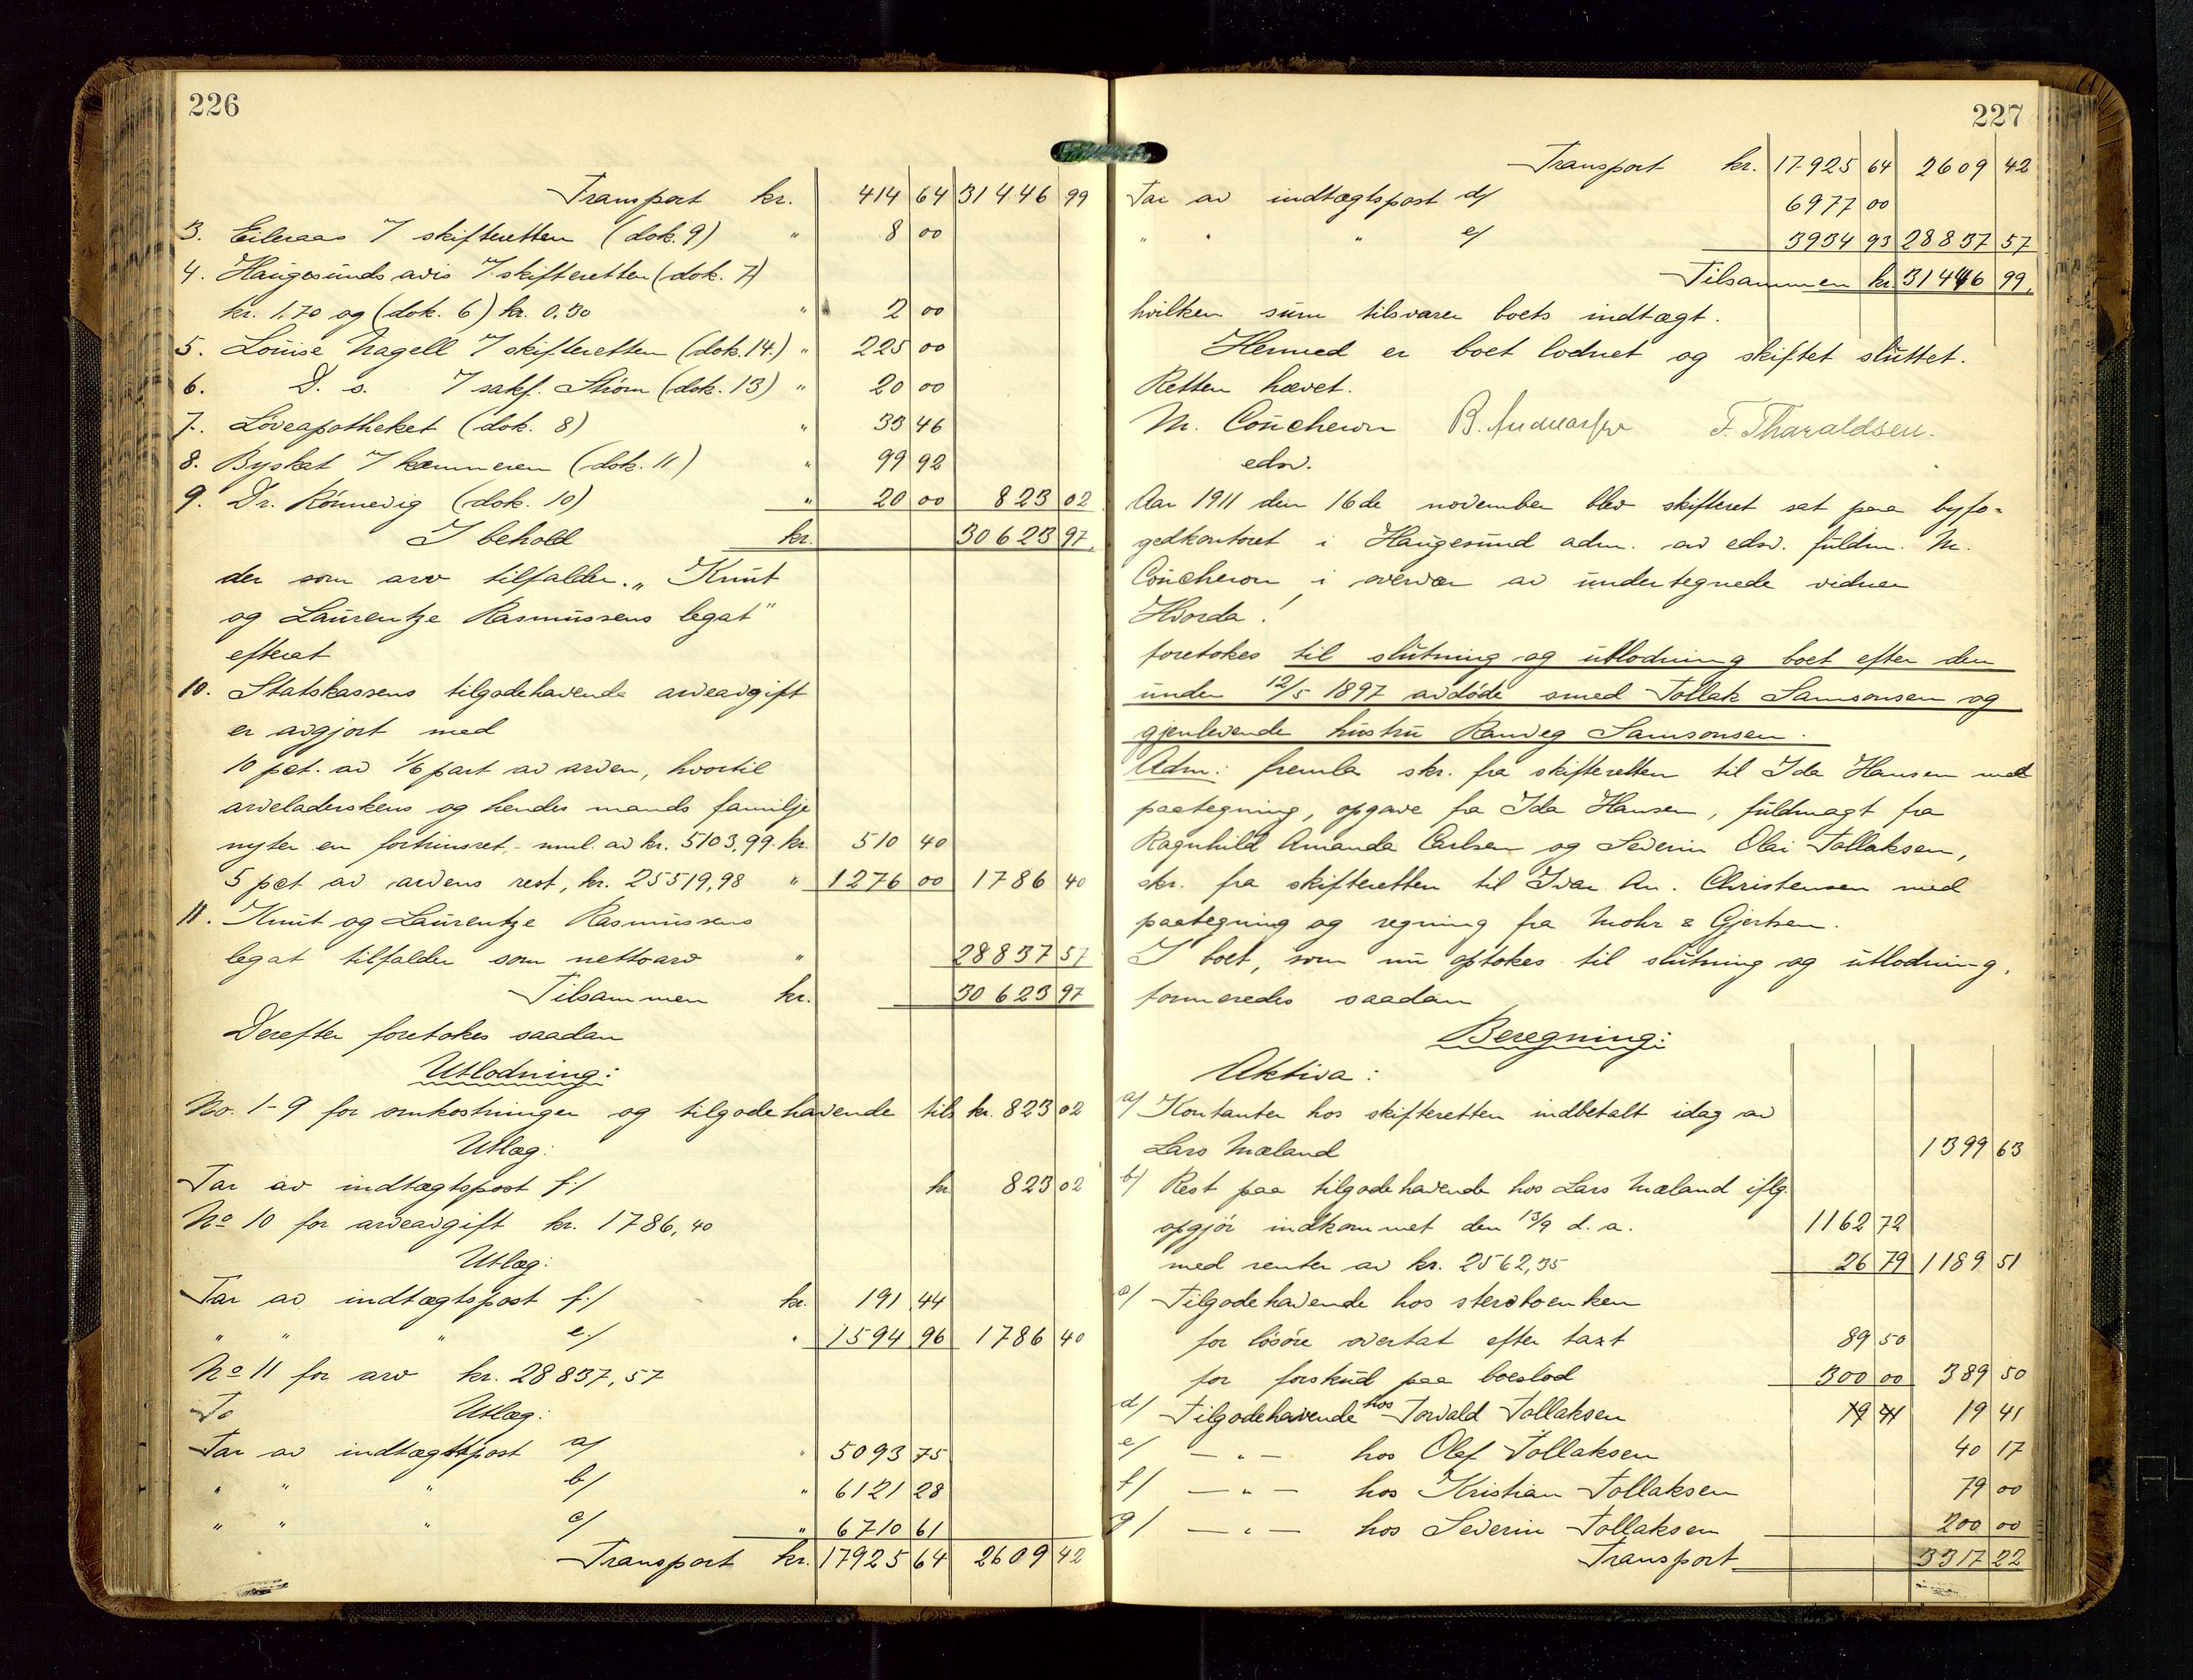 226
Transport kr. 414 64 31446 99
3. Eileraas 7 skifteretten (dok. 9) " 8 00
4. Haugesunds avis 7 skifteretten (dok. 7)
kr. 1.70 og (dok. 6) kr. 0.30 " 2 00
5. Louise Nagell 7 skifteretten (dok. 14.) " 225 00
6. D. s. 7 sakf. Strøm (dok. 13) " 20 00
7. Løveapotheket (dok. 8) " 33 46
8. Byskat 7 kæmneren (dok. 11) " 99 92
9. Dr. Rønnevig (dok. 10) " 20 00 823 02
I behold kr. 30623 97.
der som arv tilfalder „Knut
og Laurentze Rasmussens legat"
efterat
10. Statskassens tilgodehavende arveavgift
er avgjort med
10 pct. av 1/6 part av arven, hvortil
arveladerskens og hendes mands familje
nyter en fortrinsret, nml. av kr. 5103,99. kr. 510 40
5 pct av arvens rest, kr. 25519,98 " 1276 00 1786 40
11. Knut og Laurentze Rasmussens
legat tilfalder som nettoarv " 28837 57
Tilsammen kr. 30623 97
Derefter foretokes saadan
Utlodning:
No. 1-9 for omkostninger og tilgodehavende tils kr. 823 02
Utlæg:
Tar av indtægtspost f./ kr. 823 02
No 10 for arveavgift kr. 1786,40
Utlæg:
Tar av indtægtspost f./ kr. 191 44
" " " e./ " 1594 96 1786 40
No 11 for arv kr. 28837,57
To Utlæg:
Tar av indtægtspost a/ " 5093 75
" " " b/ " 6121 28
" " " c/ " 6710 61
Transport kr. 17925 64 2609 42
227
Transport kr. 17925 64 2609 42
Tar av indtægtspost d/ 6977 00
" " " e/ 3934 93 28837 57
Tilsammen kr. 31446 99.
hvilken sum tilsvarer boets indtægt.
Hermed er boet lodnet og skiftet sluttet.
Retten hævet.
M. Coucheron B. F. Tharaldsen.
edsv.
Aar 1911 den 16de november blev skifteret sat paa byfo-
gedkontoret i Haugesund adm. av edsv. fuldm. M.
Coucheron i overvær av undertegnede vidner
Hvorda!
foretokes til slutning og utlodning boet efter den
under 12/5 1897 avdøde smed Tollak Samsonsen og
gjenlevende hustru Ranveg Samsonsen.
Adm: fremla skr. fra skifteretten til Ida Hansen med
paategning, opgave fra Ida Hansen, fuldmagt fra
Ragnhild Amanda Carlsen og Severin Olai Tollaksen,
skr. fra skifteretten til Ivar An. Christensen med
paategning og regning fra Mohr & Gjertsen.
I boet, som nu optokes til slutning og utlodning,
formeredes saadan
Beregning:
Aktiva:
a/ Kontanter hos skifteretten indbetalt idag av
Lars Mæland 1399 63
b/ Rest paa tilgodehavende hos Lars Mæland iflg.
opgjør indkommet den 13/9 d. a. 1162 72
med renter av kr. 2562,35 26 79 1189 51
c/ Tilgodehavende hos stervboenken
for løsøre overtat efter taxt 89 50
for forskud paa boeslod 300 00 389 50
d/ Tilgodehavende hos Torvald Tollaksen 19 41 19 41
e/ — " — hos Olef Tollaksen 40 17
f/ — " — hos Kristian Tollaksen 79 00
g/ — " — hos Severin Tollaksen 200 00
Transport 3317 22